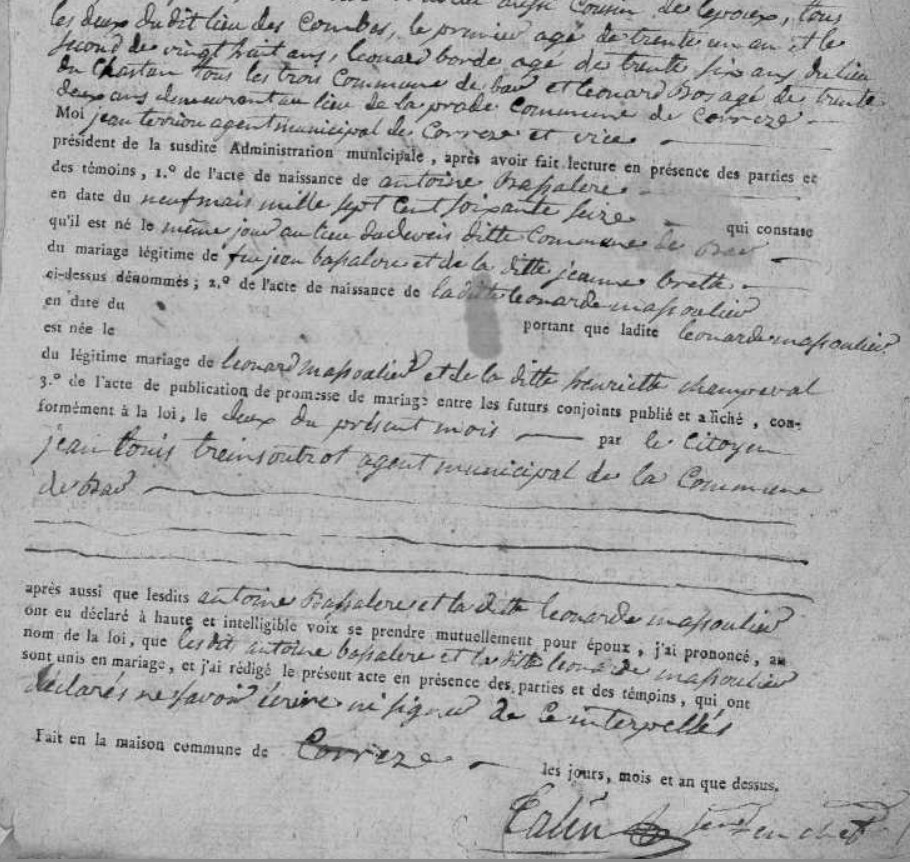 aussi Cousin de lepoux, tous
les deux du dit lieu des Combes, le premier agé de trente un an et le
second de vingt huit ans, leonard borde agé de trente six ans du lieu
du Chastan tous les trois Commune de bar et leonard Bos agé de trente
deux ans demeurant au lieu de la prade Commune de Correze
Moi jean terriou agent municipal de Correze et vice
président de la susdite Administration municipale, après avoir fait lecture en présence des parties et
des témoins, 1.° de l'acte de naissance de antoine Bassalere
en date du neuf mais mille sept cent soixante seize qui constate
qu'il est né le même jour au lieu ditte Commune de Bar
du mariage légitime de feu jean bassalere et de la ditte jeanne
ci-dessus dénommés; 2.° de l'acte de naissance de la ditte leonarde massoulier
en date du portant que ladite leonarde massoulier
est née le
du légitime mariage de leonard massoulier et de la ditte henriette champeval
3.° de l'acte de publication de promesse de mariage entre les futurs conjoints publié et affiché, con-
formément à la loi, le deux du présent mois — par le Citoyen
jean louis treinsoutrot agent municipal de la Commune
de Bar
après aussi que lesdits antoine Bassalere et la ditte leonarde massoulier
ont eu déclaré à haute et intelligible voix se prendre mutuellement pour époux, j'ai prononcé, au
nom de la loi, que lesdit antoine bassalere et la ditte leonarde massoulier
sont unis en mariage, et j'ai rédigé le présent acte en présence des parties et des témoins, qui ont
déclarés ne savoir écrire ni signer de ce interpellés
Fait en la maison commune de Correze — les jours, mois et an que dessus.
en chef